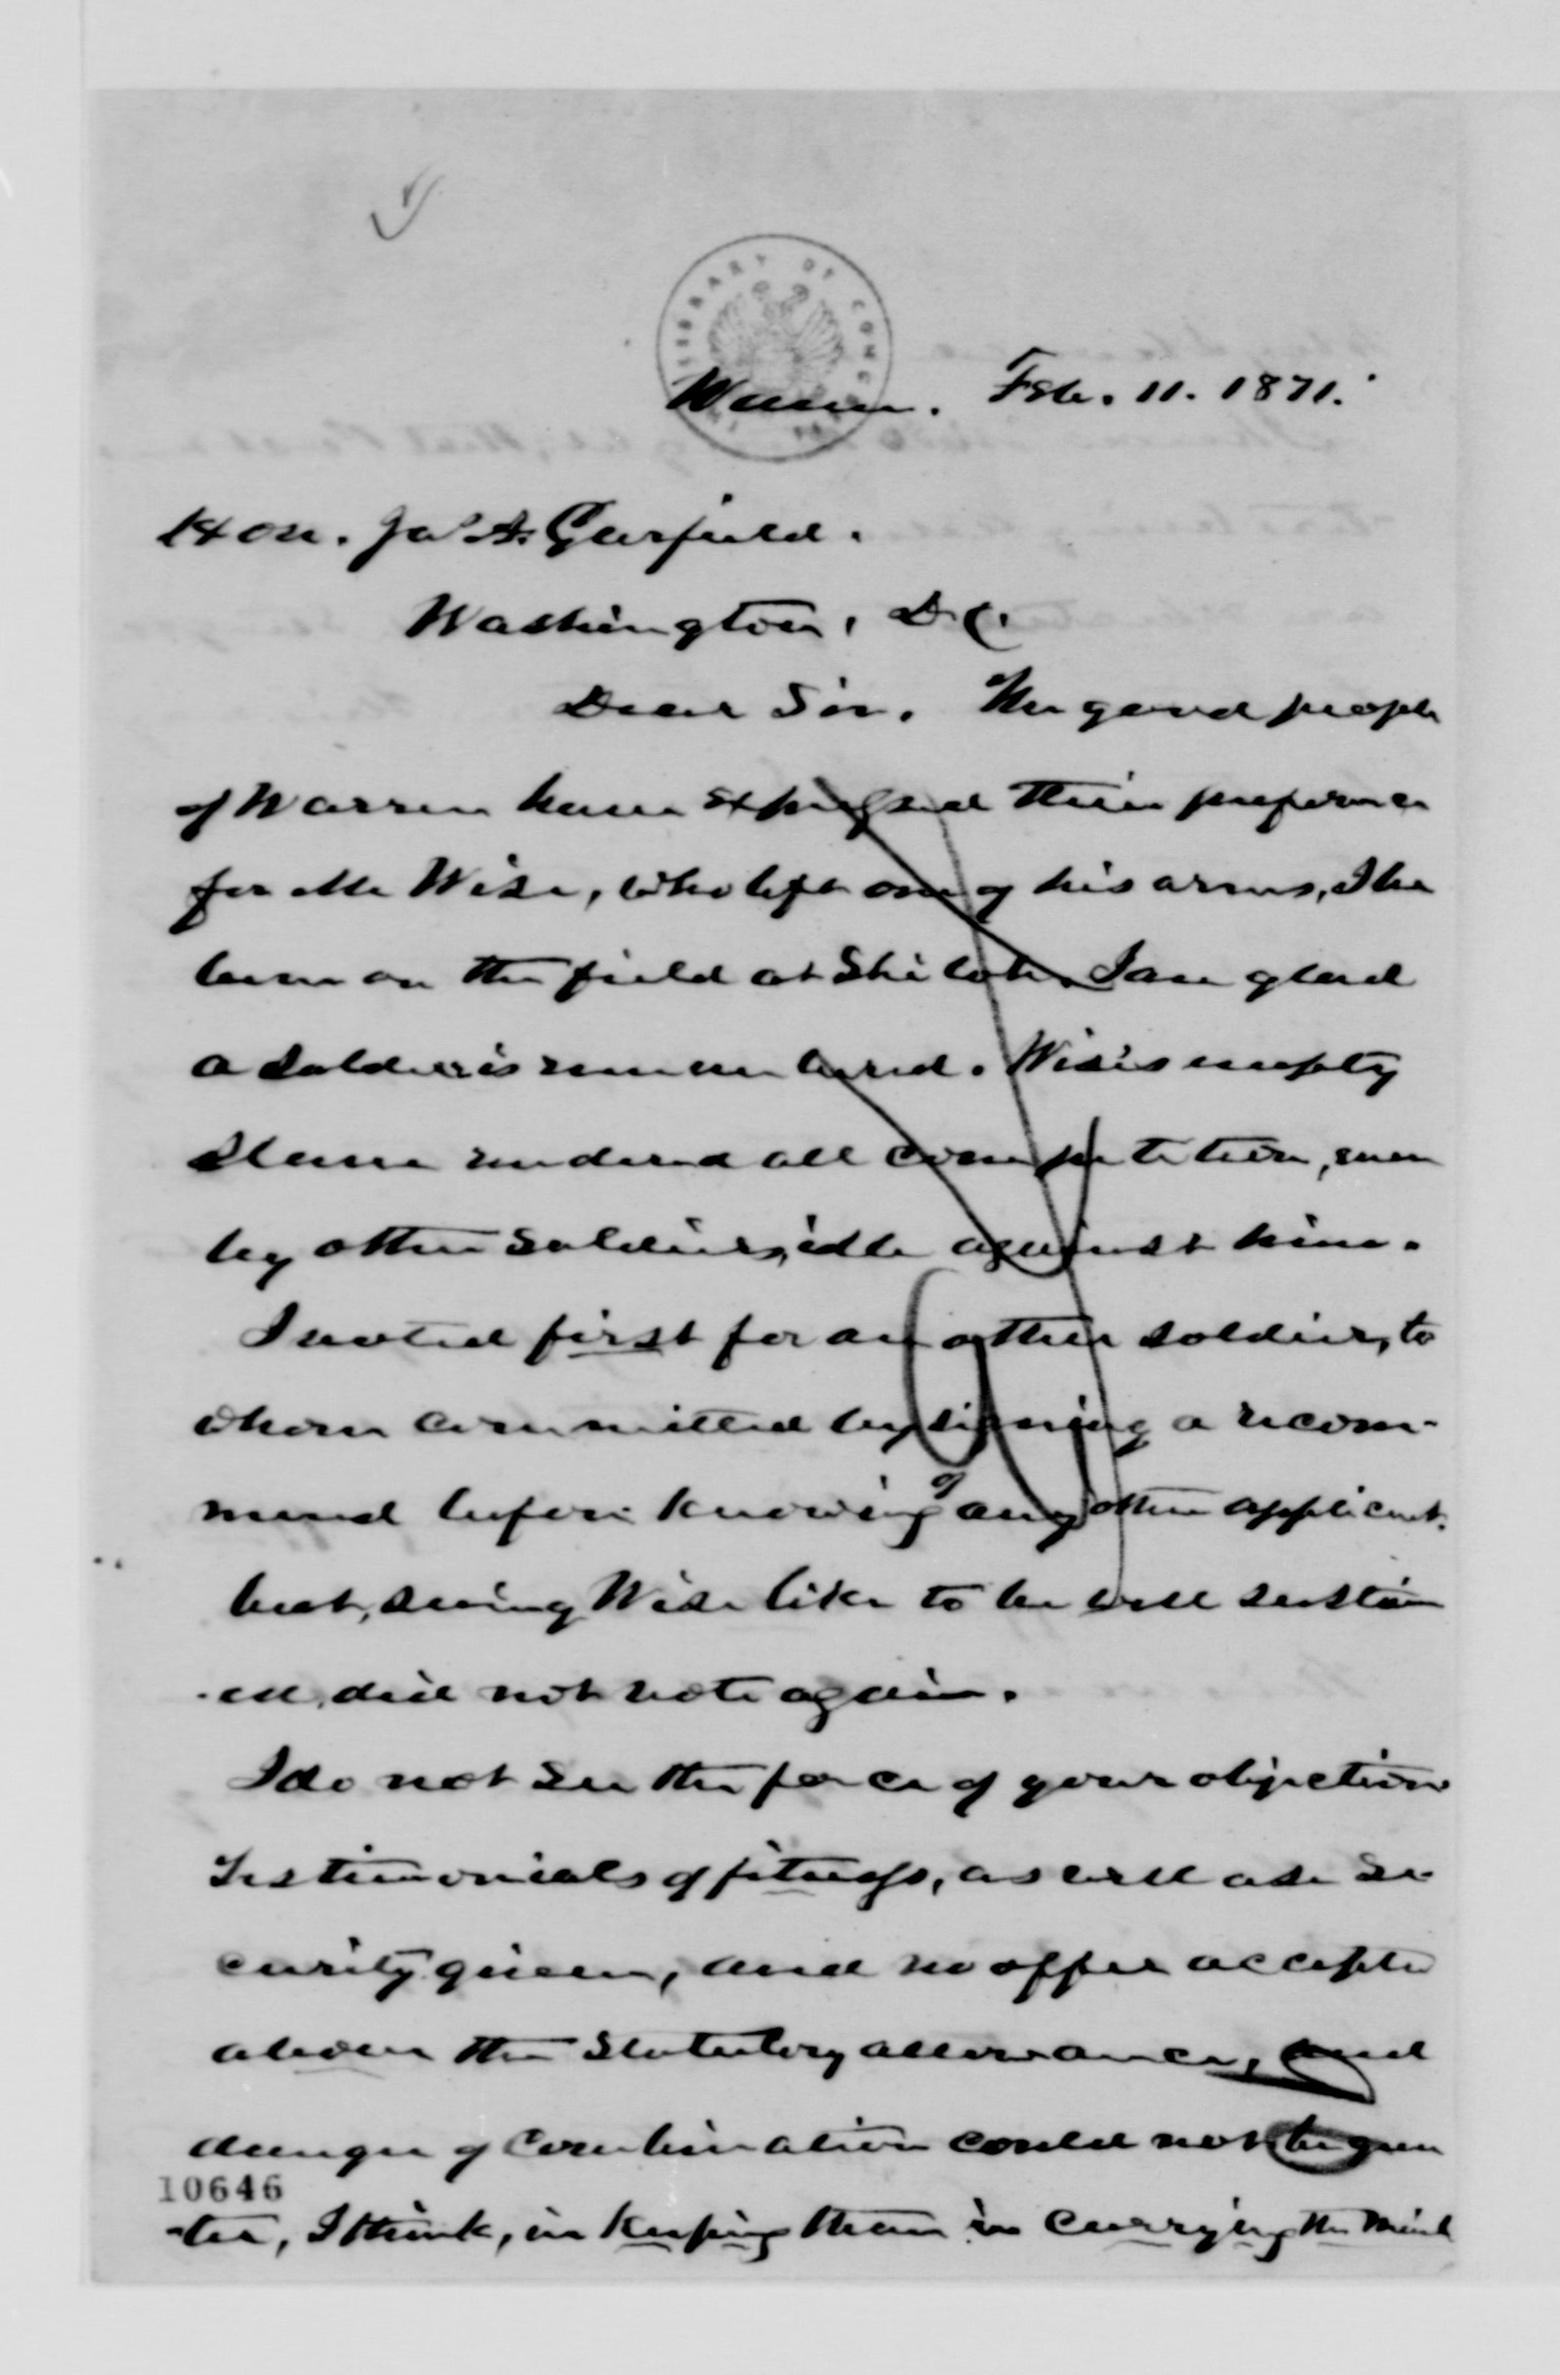 LIBRARY OF CONGRESS
Warren. Feb. 11. 1871.
Hon. Jas A. Garfield.
Washington, D.C.
Dear Sir. The good people
of Warren have expressed their preference
for Wise, who left one of his arms, I be
on the field at Shiloh. I am glad
a soldier is remembered. Wise's empty
sleeve rendered all competition, even
by other soldiers, idle against him.
I voted first for another soldier, to
whom committed by signing a recom-
mend before knowing of any other applicant.
but, seeing Wise like to be well sustain
-ed, did not vote again.
I do not see the force of your objection
Testimonials of fitness, as well as se-
curity given, and no offer accepted
above the statutory allowance, and
danger of combination could not be grea
10646
-ter, I think, in keeping them in carrying the mail